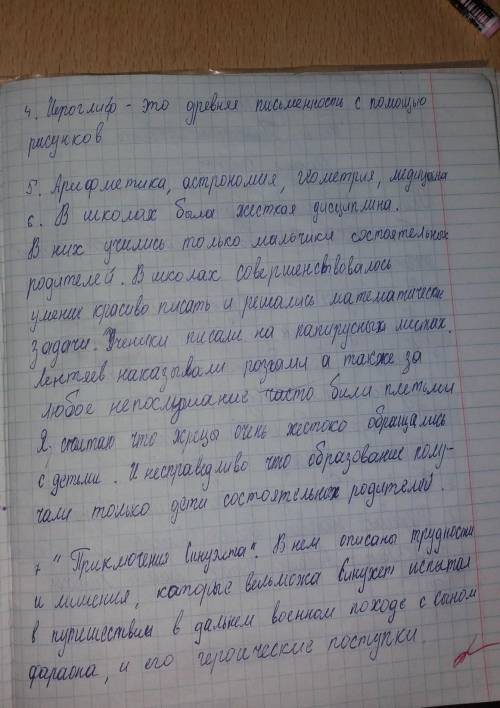 4. Иероглиф - это древняя письменность с помощью
рисунков
5. Арифметика, астрономия, геометрия, медицина
6. В школах была жесткая дисциплина.
В них учились только мальчики состоятельных
родителей. В школах совершенствовалось
умение красиво писать и решались математические
задачи. Ученики писали на папирусных листах.
Лентяев наказывали розгами а также за
любое непослушание часто били плетьми
Я считаю что жрецы очень жестоко обращались
с детьми. И несправедливо что образование полу-
чали только дети состоятельных родителей.
7 "Приключения Синухета". В нем описаны трудности
и лишения, которые вельможа Синухет испытал
в путешествии в дальнем военном походе с сыном
фараона, и его героические поступки.